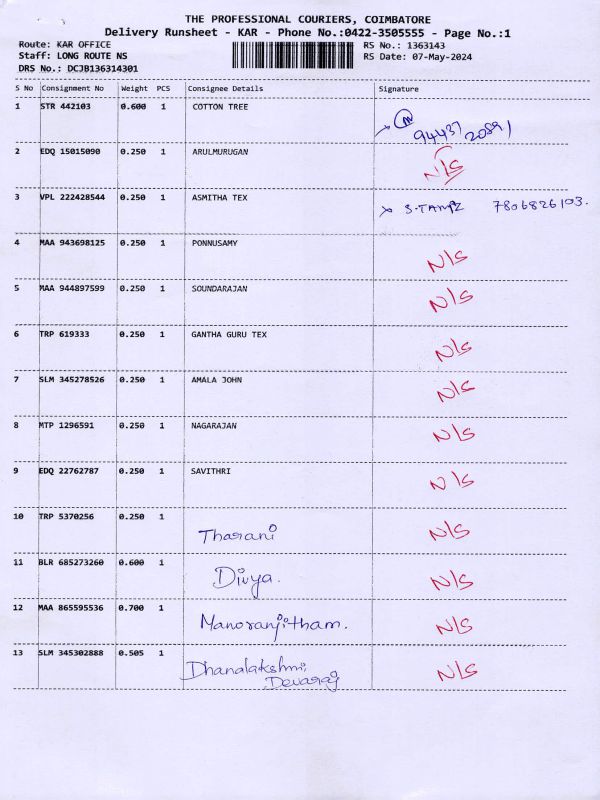 THE PROFESSIONAL COURIERS, COIMBATORE
Delivery Runsheet - KAR - Phone No.:0422-3505555 - Page No.:1
Route: KAR OFFICE RS No.: 1363143
Staff: LONG ROUTE NS RS Date: 07-May-2024
DRS No.: DCJB136314301
S No Consignment No Weight PCS Consignee Details Signature
1 STR 442103 0.600 1 COTTON TREE
94437 20891
2 EDQ 15015090 0.250 1 ARULMURUGAN N/S
3 VPL 222428544 0.250 1 ASMITHA TEX 7806826103.
4 MAA 943698125 0.250 1 PONNUSAMY N/S
5 MAA 944897599 0.250 1 SOUNDARAJAN N/S
6 TRP 619333 0.250 1 GANTHA GURU TEX N/S
7 SLM 345278526 0.250 1 AMALA JOHN N/S
8 MTP 1296591 0.250 1 NAGARAJAN N/S
9 EDQ 22762787 0.250 1 SAVITHRI N/S
10 TRP 5370256 0.250 1 Tharani N/S
11 BLR 685273260 0.600 1 Divya. N/S
12 MAA 865595536 0.700 1 Manoranjitham. N/S
13 SLM 345302888 0.505 1 Dhanalakshmi N/S
Devaraj